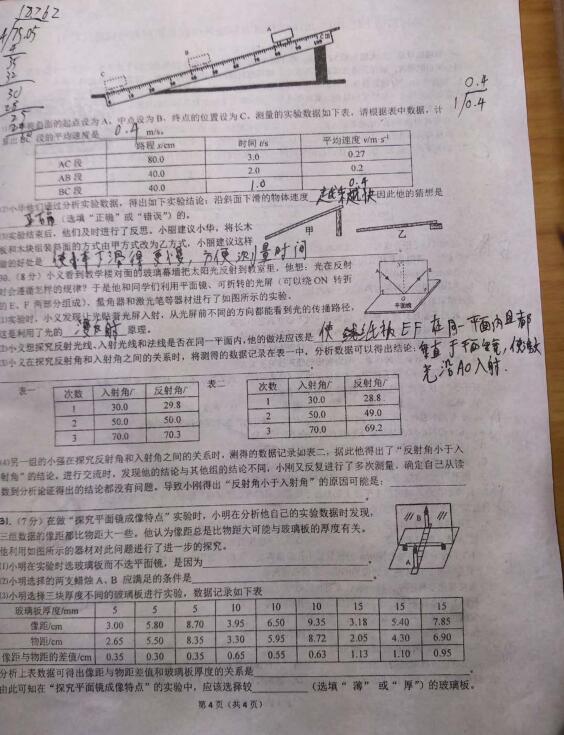 18762
4/75.05
4
35
32
30
28
25
24
0.4
1/0.4
A
B
C
斜面的起点设为A、中点设为B、终点的位置设为C，测量的实验数据如下表，请根据表中数据，计
算出BC段的平均速度是 0.4 m/s。
路程s/cm 时间t/s 平均速度v/m·s-1
AC段 80.0 3.0 0.27
AB段 40.0 2.0 0.2
BC段 40.0 1.0 0.4
(2)小华他们通过分析实验数据，得出如下实验结论：沿斜面下滑的物体速度 越来越快 因此他的猜想是
正确 (选填“正确”或“错误”)的。
(3)实验结束后，他们及时进行了反思。小丽建议小华，将长木
板和木块组装斜面的方式由甲方式改为乙方式，小丽建议这样
做的好处是 使木块下滑得更慢，方便测量时间
甲
乙
30.（8分）小义看到教学楼对面的玻璃幕墙把太阳光反射到教室里，他想：光在反射
时会遵循怎样的规律？于是他和同学们利用平面镜、可折转的光屏（可以绕ON转折
的E、F两部分组成）、量角器和激光笔等器材进行了如图所示的实验。
(1)实验时，小义发现让光贴着光屏入射，从光屏前不同的方向都能看到光的传播路径，
这是利用了光的 漫反射 原理。
(2)小义想探究反射光线、入射光线和法线是否在同一平面内，他的做法应该是 使 纸板EF在同一平面内且都
垂直于平面镜，使激
光沿AO入射.
(3)小义在探究反射角和入射角之间的关系时，将测得的数据记录在表一中，分析数据可以得出结论：
平面镜
表一
次数 入射角/° 反射角/°
1 30.0 29.8
2 50.0 50.0
3 70.0 70.3
表二
次数 入射角/° 反射角/°
1 30.0 28.8
2 50.0 49.0
3 70.0 69.2
(4)另一组的小强在探究反射角和入射角之间的关系时，测得的数据记录如表二，据此他得出了“反射角小于入
射角”的结论。进行交流时，发现他的结论与其他组的结论不同，小刚又反复进行了多次测量，确定自己从读
数到分析论证得出的结论都没有问题。导致小刚得出“反射角小于入射角”的原因可能是：
31.（7分）在做“探究平面镜成像特点”实验时，小明在分析他自己的实验数据时发现，
三组数据的像距都比物距大一些。他认为像距总是比物距大可能与玻璃板的厚度有关。
他利用如图所示的器材对此问题进行了进一步的探究。
(1)小明在实验时选玻璃板而不选平面镜，是因为
(2)小明选择的两支蜡烛A、B应满足的条件是
(3)小明选择三块厚度不同的玻璃板进行实验，数据记录如下表
B
A
玻璃板厚度/mm 5 5 5 10 10 10 15 15 15
像距/cm 3.00 5.80 8.70 3.95 6.50 9.35 3.18 5.40 7.85
物距/cm 2.65 5.50 8.35 3.30 5.95 8.72 2.05 4.30 6.90
像距与物距的差值/cm 0.35 0.30 0.35 0.65 0.55 0.63 1.13 1.10 0.95
分析上表数据可得出像距与物距差值和玻璃板厚度的关系是
由此可知在“探究平面镜成像特点”的实验中，应该选择较 （选填“薄”或“厚”）的玻璃板。
第4页（共4页）